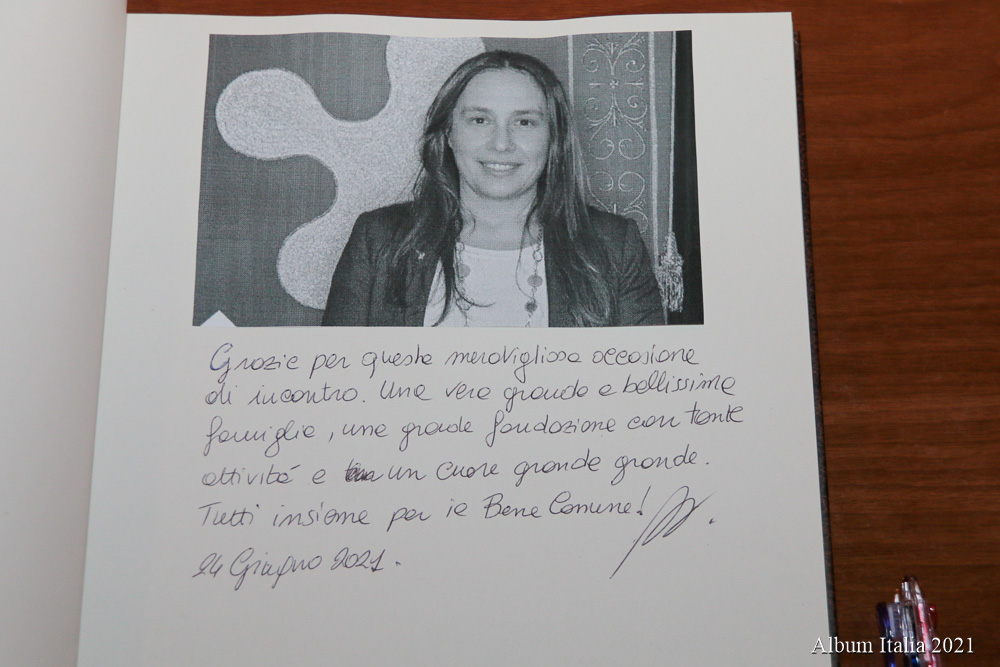 Grazie per questa meravigliosa occasione
di incontro. Una vera grande e bellissima
famiglia, una grande fondazione con tante
attività e un cuore grande grande.
Tutti insieme per il Bene Comune!
24 Giugno 2021.
Album Italia 2021